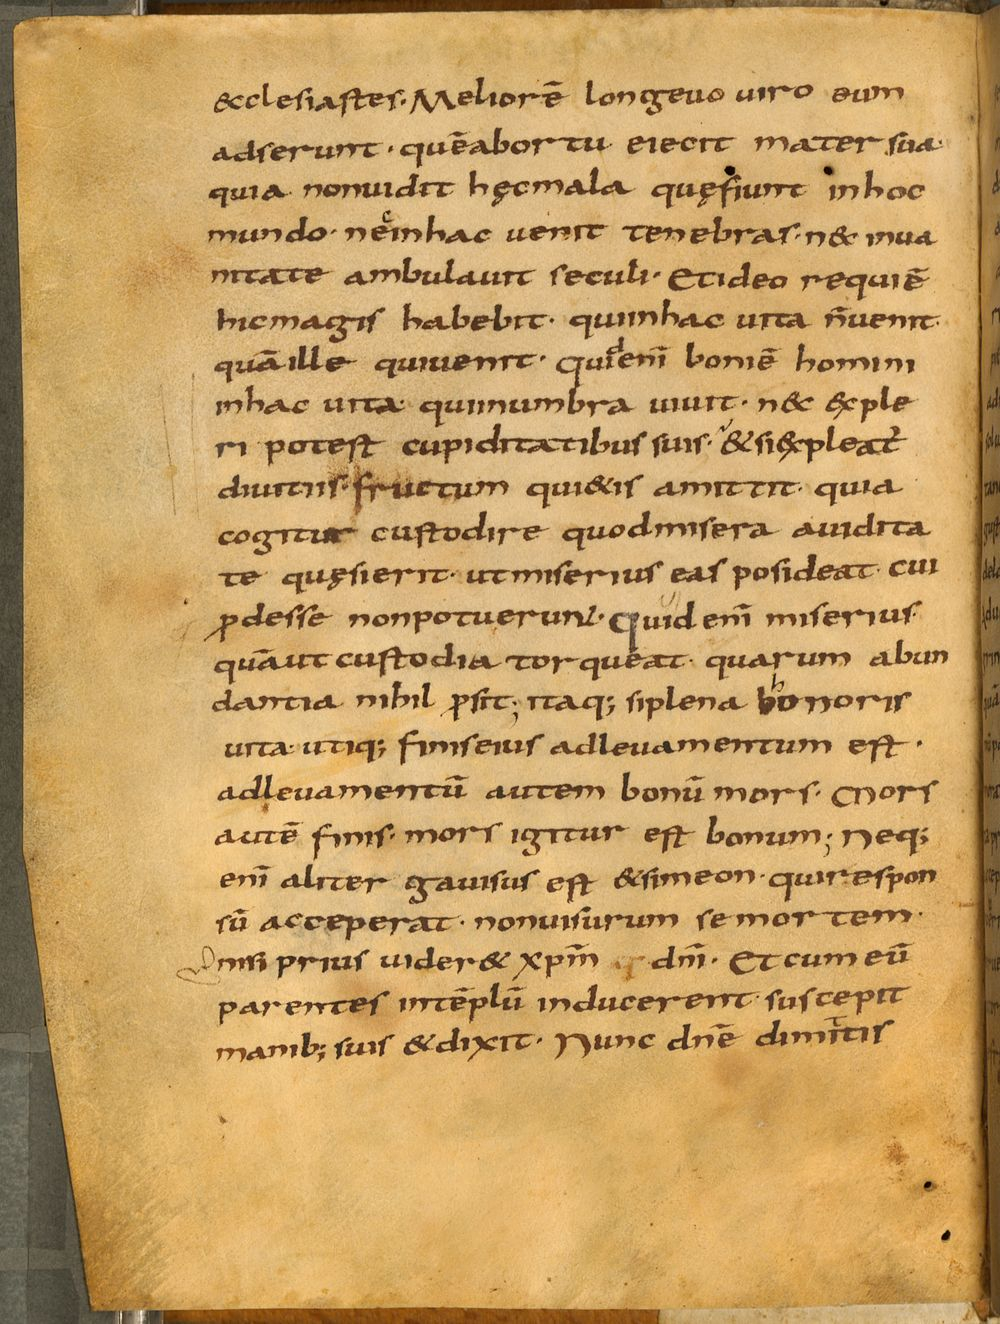 &cclesiastes. Meliorē longeuo uiro eum
adserunt. quēabortu eiecit mater sua.
quia nonuidit hęcmala quęfiunt inhoc
mundo. nec̄inhac uenit tenebras. n& inua
nitate ambulauit seculi. Etideo requiē
hicmagis habebit. quiinhac uita n̄uenit.
quāille quiuenit. Quidenī boniē homini
inhac uita quiinumbra uiuit. n& exple
ri potest cupiditatibus suis. &si&pleat᷑
diuitiis. fructum qui&is amittit. quia
cogitur custodire quodmisera auidita
te quęsierit. utmiserius eas posideat. cui
ꝓdesse nonpotuerunt. Quid enī miserius.
quāut custodia torqueat. quarum abun
dantia nihil ꝓsit; itaq; siplena honoris
uita. utiq; finiseius adleuamentum est.
adleuamentū autem bonū mors. Mors
autē finis. mors igitur est bonum; Neq;
enī aliter gauisus est &simeon. quirespon
sū acceperat. nonuisurum se mortem.
nisi prius uider& xpm̄ dnī. Et cum eū
parentes intēplū inducerent. suscepit
manib; suis &dixit. Nunc dnē dimittis